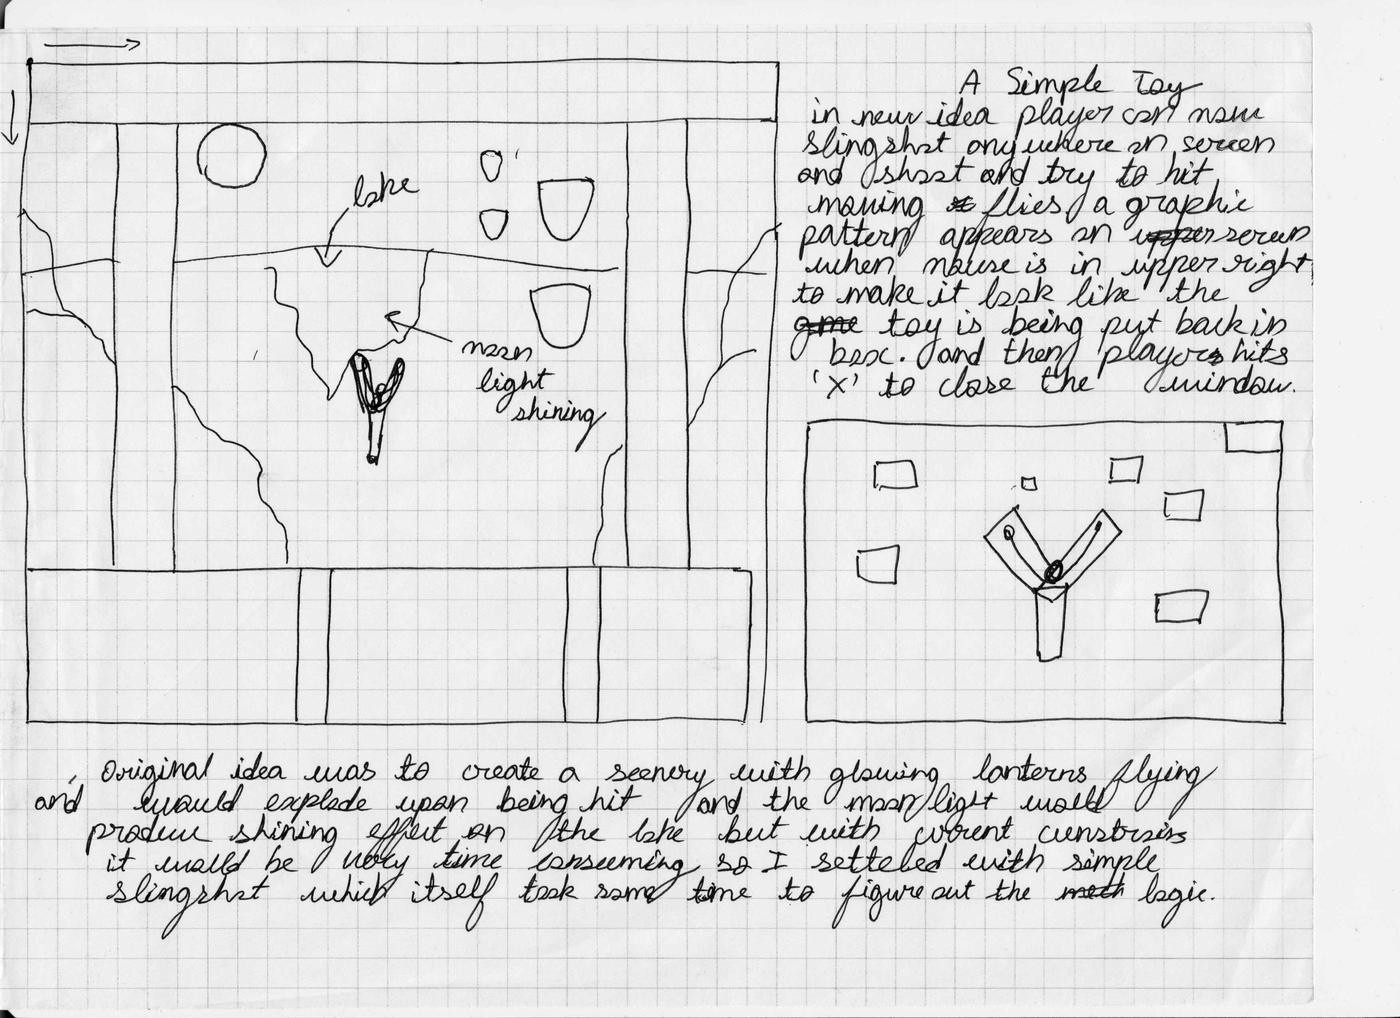 A Simple Toy
in new idea player can move
slingshot anywhere on screen
and shoot and try to hit
moving flies, a graphic
pattern appears on upper screen
when mouse is in upper right
to make it look like the
game toy is being put back in
box. and then players hits
'X' to close the window.
lake
moon
light
shining
Original idea was to create a scenery with glowing lanterns flying
and would explode upon being hit and the moon light would
produce shining effect on the lake but with
it would be very time consuming so I setteled with simple
slingshot which itself took some time to figure out the math logic.